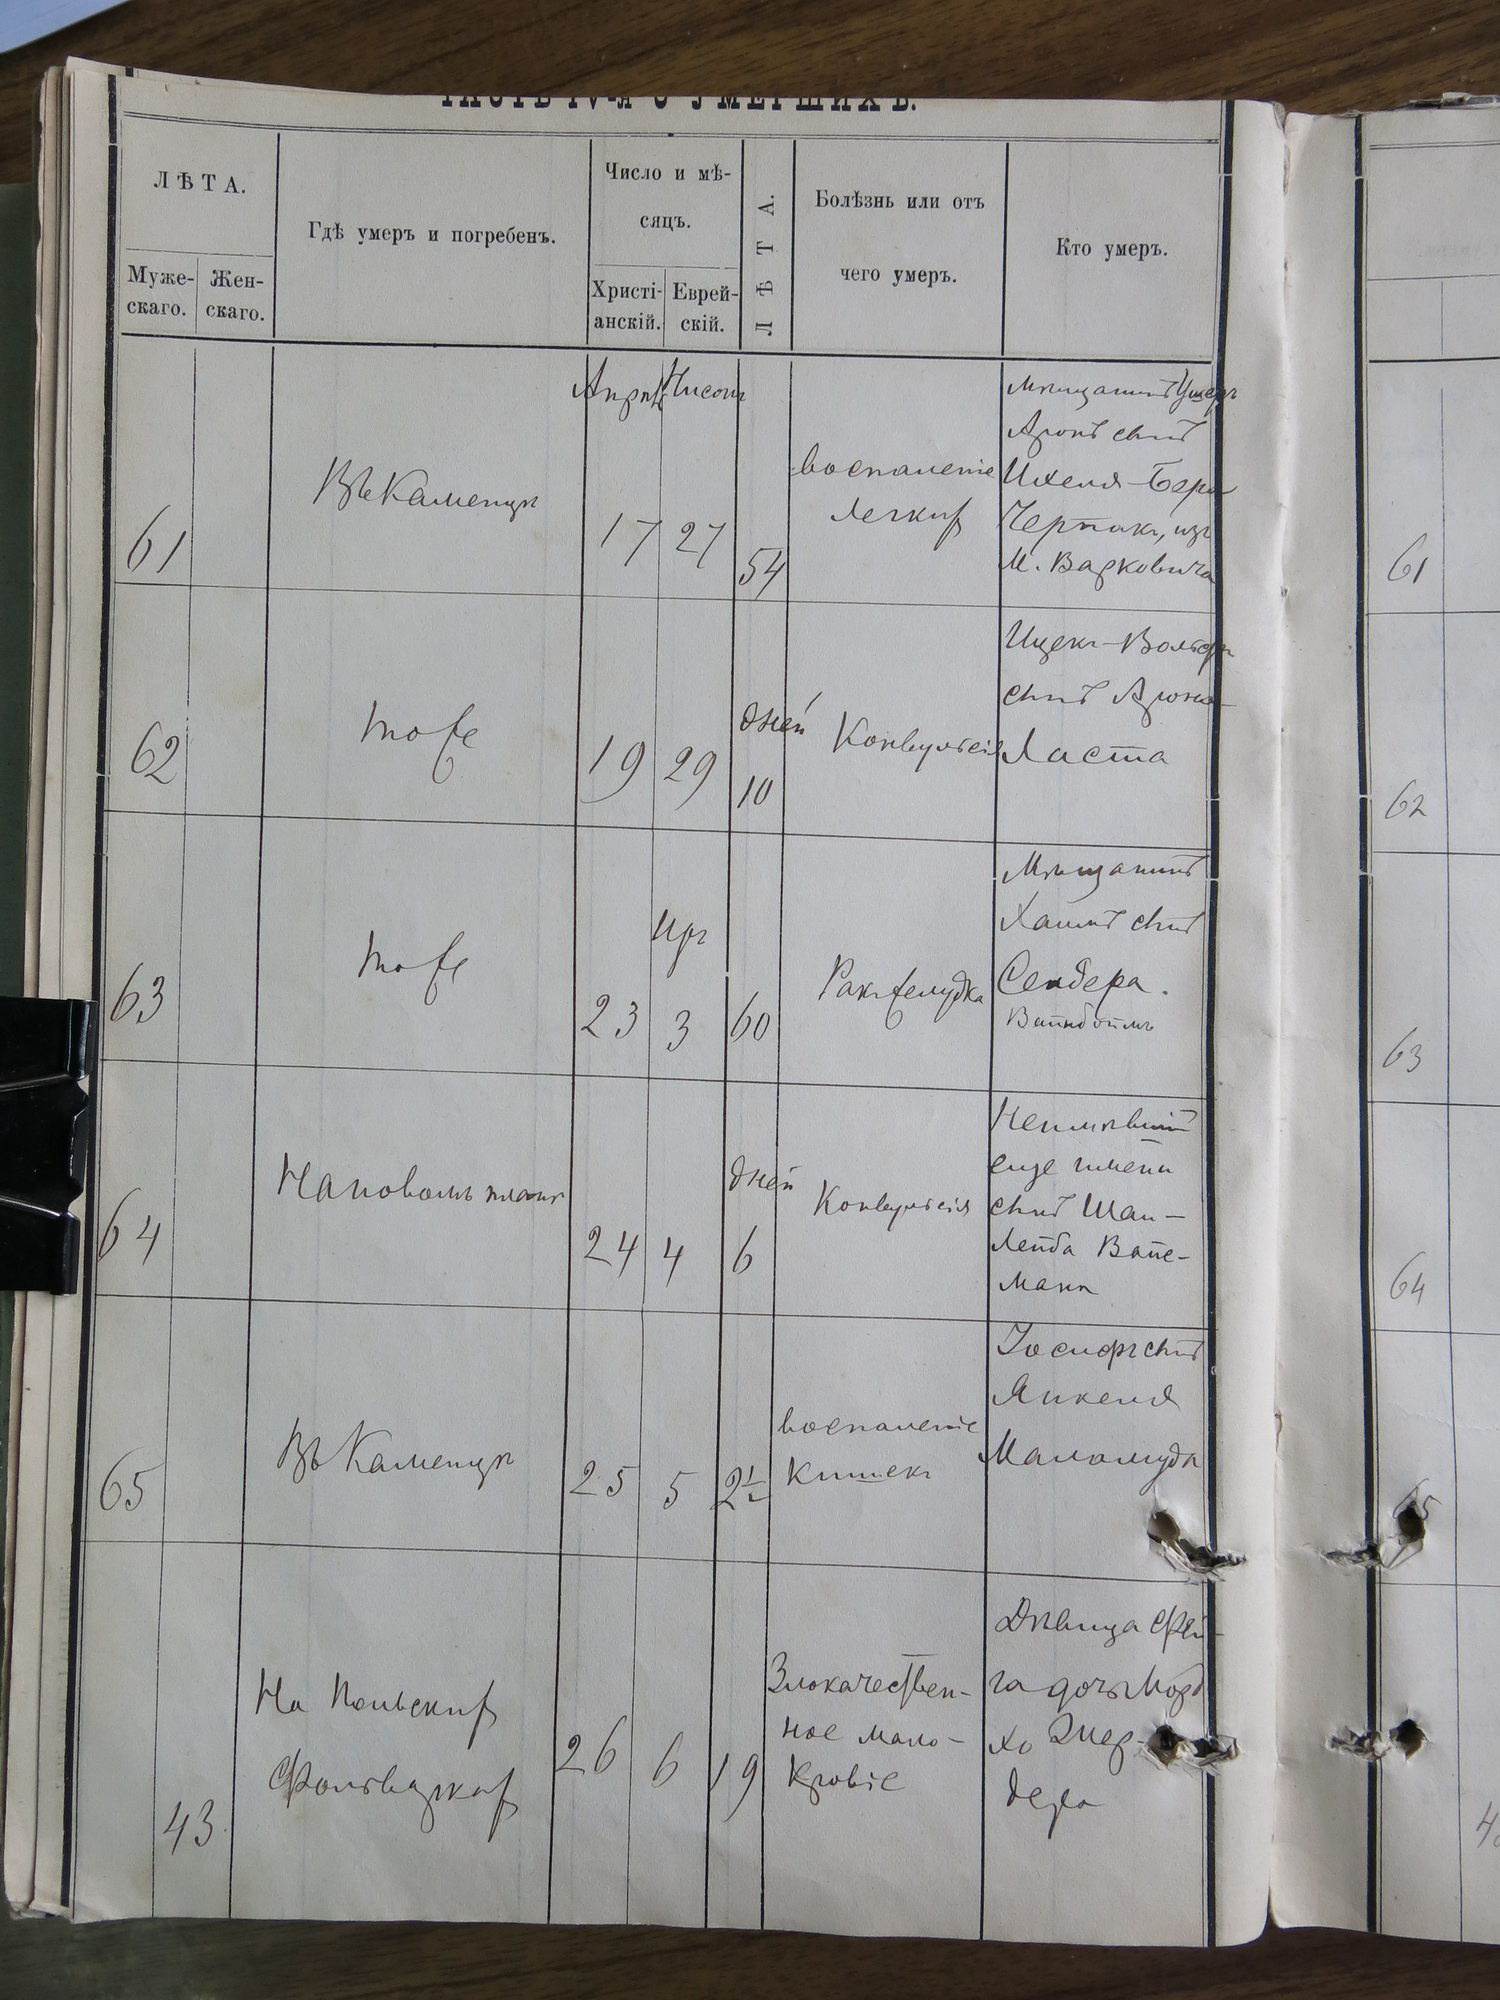 ЧАСТЬ IV-я О УМЕРШИХЪ.
ЛѢТА.
Муже-
скаго.
Жен-
скаго.
Гдѣ умеръ и погребенъ.
Число и мѣ-
сяцъ.
Христі-
анскій.
Еврей-
скій.
ЛѢТА.
Болѣзнь или отъ
чего умеръ.
Кто умеръ.
61
Въ Каменцѣ
17
27
54
воспаленіе
легкихъ
Мѣщанинъ Ушеръ
Аронъ сынъ
Ихеля-Бера
Черпакъ, изъ
м. Варковича
62
тоже
19
29
дней
10
Конвульсія
Ицекъ-Вольфъ
сынъ Арона
Ласта
63
тоже
23
Иръ
3
60
Ракъ желудка
Мѣщанинъ
Хаимъ сынъ
Сендера.
Вайнбоймъ
64
На новомъ планѣ
24
4
дней
6
Конвульсія
Неимѣвшій
еще имени
сынъ Шаи-
Лейба
манъ
65
Въ Каменцѣ
25
5
2½
воспаленіе
кишекъ
Іосифъ сынъ
Янкеля
Маламуда
43
На Польскихъ
Фольваркахъ
26
6
19
Злокачествен-
ное мало-
кровіе
Дѣвица Фей-
га дочь Морд
хо
дера
61
62
63
64
65